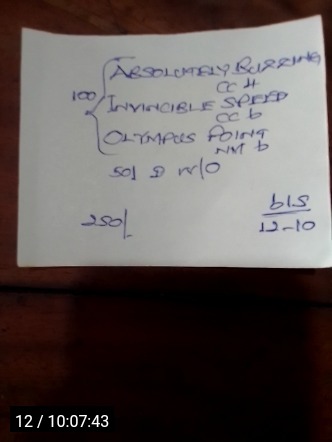 ABSOLUTELY BUZZING
CC 4
100 INVINCIBLE SPEED
CC 6
OLYMPUS POINT
NM 6
50/ D W/O
250/
b/s
12-10
12 / 10:07:43